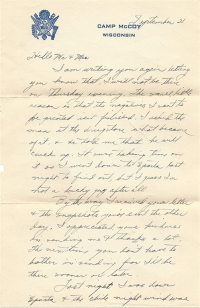 CAMP McCOY
WISCONSIN
September 21
Hello Mr & Mrs
I am writing you again letting
you know that I will not be there
on Thursday coming. The
reason is that the negatives I sent to
be are not finished. I asked the
man at the drugstore what became
of it, & he told me that he will
check up. I was banking on
it as I went down to Sparta last
night to find out, but I guess I'm
not a lucky guy after all
By the way I received your letter
& the snapshots you sent the other
day. I appreciate your kindness
by sending me & thanks a lot.
The next time you don't have to
bother in sending for I'll be
there sooner or later.
Last night I was down
Sparta & the whole night wind was